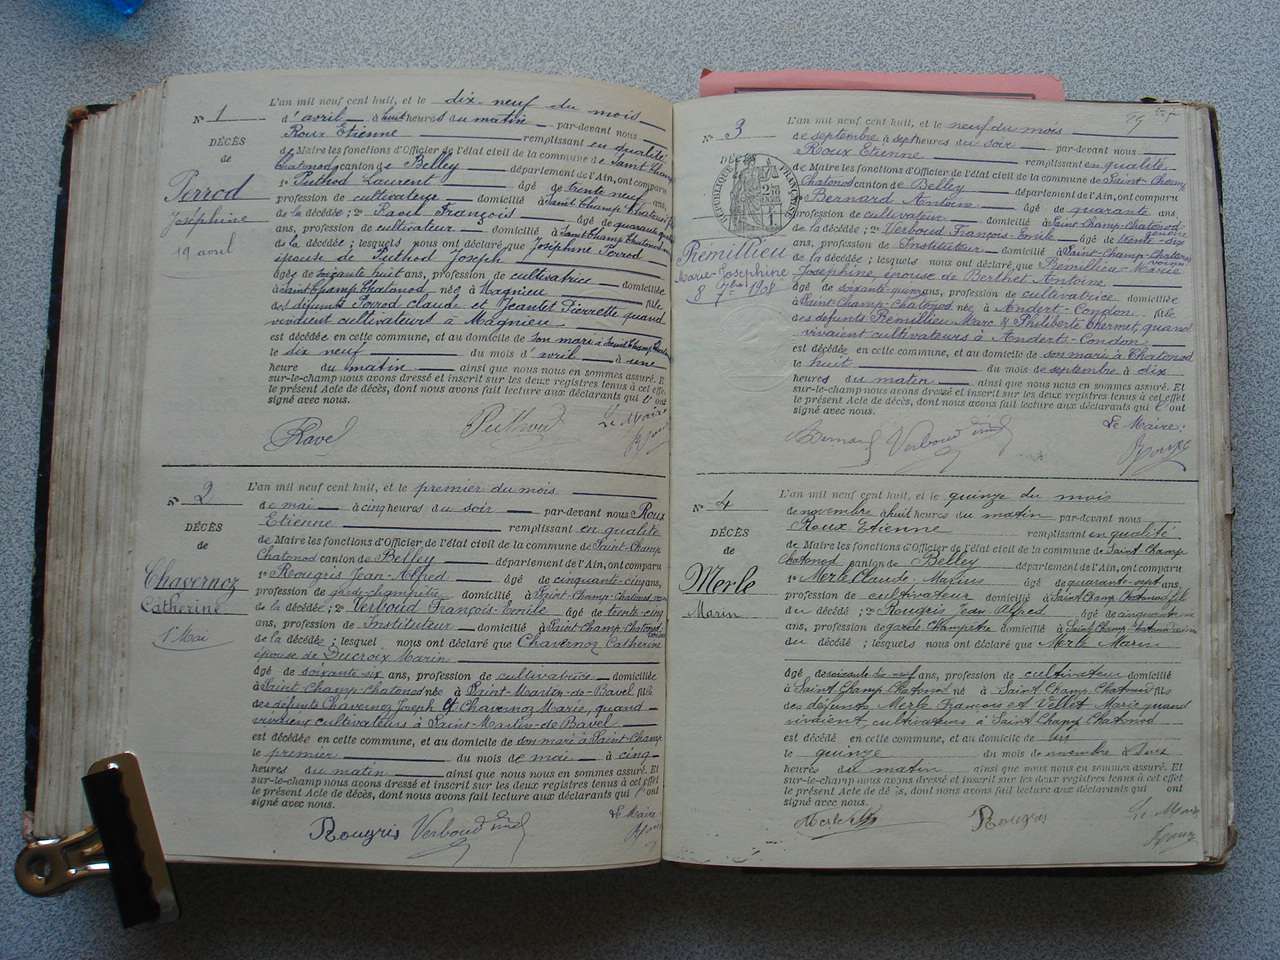 N° 1
DÉCÈS
de
Perrod
Joséphine
19 avril
L'an mil neuf cent huit, et le dix-neuf du mois
d'avril à huit heures du matin par-devant nous
Roux Etienne remplissant en qualité
de Maire les fonctions d'Officier de l'état civil de la commune de Saint-Champ
Chatonod canton de Belley département de l'Ain, ont comparu
1° Puthod Laurent âgé de trente neuf ans,
profession de cultivateur domicilié à Saint Champ Chatonod
de la décédée ; 2° Ravel François âgé de quarante quatre
ans, profession de cultivateur domicilié à Saint Champ Chatonod
de la décédée ; lesquels nous ont déclaré que Joséphine Perrod
épouse de Puthod Joseph
âgée de soixante huit ans, profession de cultivatrice domiciliée
à Saint Champ Chatonod, née à Magnieu fille
des défunts Perrod Claude et Jeantet Pierrette quand
vivaient cultivateurs à Magnieu
est décédée en cette commune, et au domicile de son mari à Saint Champ Chatonod
le dix neuf du mois d'avril à une
heure du matin ainsi que nous nous en sommes assuré. Et
sur-le-champ nous avons dressé et inscrit sur les deux registres tenus à cet effet
le présent Acte de décès, dont nous avons fait lecture aux déclarants qui l'ont
signé avec nous.
Ravel Puthod Le Maire
Roux
N° 2
DÉCÈS
de
Chavernoz
Catherine
1er Mai
L'an mil neuf cent huit, et le premier du mois
de mai à cinq heures du soir par-devant nous Roux
Etienne remplissant en qualité
de Maire les fonctions d'Officier de l'état civil de la commune de Saint-Champ
Chatonod canton de Belley département de l'Ain, ont comparu
1° Rougris Jean-Alfred âgé de cinquante-cinq ans,
profession de garde-champêtre domicilié à Saint-Champ-Chatonod
de la décédée ; 2° Verboud François-Emile âgé de trente-cinq
ans, profession de Instituteur domicilié à Saint-Champ-Chatonod
de la décédée ; lesquels nous ont déclaré que Chavernoz Catherine
épouse de Ducroix Marin
âgé de soixante-six ans, profession de cultivatrice domiciliée
à Saint-Champ-Chatonod née à Saint-Martin-de-Bavel fille
des défunts Chavernoz Joseph et Chavernoz Marie, quand
vivaient cultivateurs à Saint-Martin-de-Bavel
est décédée en cette commune, et au domicile de son mari à Saint Champ
le premier du mois de mai à cinq
heures du matin ainsi que nous nous en sommes assuré. Et
sur-le-champ nous avons dressé et inscrit sur les deux registres tenus à cet effet
le présent Acte de décès, dont nous avons fait lecture aux déclarants qui l'ont
signé avec nous.
Rougris Verboud Le Maire
Roux
29
N° 3
DÉCÈS
RÉPUBLIQUE FRANÇAISE
Rémillieu
Marie-Josephine
8 7bre 1908
L'an mil neuf cent huit, et le neuf du mois
de septembre à sept heures du soir par-devant nous
Roux Etienne remplissant en qualité
de Maire les fonctions d'Officier de l'état civil de la commune de Saint-Champ
Chatonod canton de Belley département de l'Ain, ont comparu
1° Bernard Antoine âgé de quarante ans,
profession de cultivateur domicilié à Saint-Champ-Chatonod
de la décédée ; 2° Verboud François-Emile âgé de trente-six
ans, profession de Instituteur domicilié à Saint-Champ-Chatonod
de la décédée ; lesquels nous ont déclaré que Rémillieu-Marie
Josephine épouse de Berthet Antoine
âgé de soixante-quinze ans, profession de cultivatrice domiciliée
à Saint-Champ-Chatonod née à Andert-Condon fille
des défunts Rémillieu Marc & Philiberte Thermet, quand
vivaient cultivateurs à Andert-Condon
est décédée en cette commune, et au domicile de son mari à Chatonod
le huit du mois de septembre à dix
heures du matin ainsi que nous nous en sommes assuré. Et
sur-le-champ nous avons dressé et inscrit sur les deux registres tenus à cet effet
le présent Acte de décès, dont nous avons fait lecture aux déclarants qui l'ont
signé avec nous.
Bernard Verboud Le Maire :
Roux
N° 4
DÉCÈS
de
Merle
Marin
L'an mil neuf cent huit, et le quinze du mois
de novembre à huit heures du matin par-devant nous
Roux Etienne remplissant en qualité
de Maire les fonctions d'Officier de l'état civil de la commune de Saint Champ
Chatonod canton de Belley département de l'Ain, ont comparu
1° Merle Claude Marius âgé de quarante-sept ans,
profession de cultivateur domicilié à Saint Champ Chatonod fils
du décédé ; 2° Rougris Jean Alfred âgé de cinquante
ans, profession de garde champêtre domicilié à Saint Champ Chatonod
du décédé ; lesquels nous ont déclaré que Merle Marin
âgé de soixante dix neuf ans, profession de cultivateur domicilié
à Saint Champ Chatonod né à Saint Champ Chatonod fils
des défunts Merle François et Vellet Marie quand
vivaient cultivateurs à Saint Champ Chatonod
est décédé en cette commune, et au domicile de lui
le quinze du mois de novembre à deux
heures du matin ainsi que nous nous en sommes assuré. Et
sur-le-champ nous avons dressé et inscrit sur les deux registres tenus à cet effet
le présent Acte de décès, dont nous avons fait lecture aux déclarants qui l'ont
signé avec nous.
Merle Rougris Le Maire
Roux